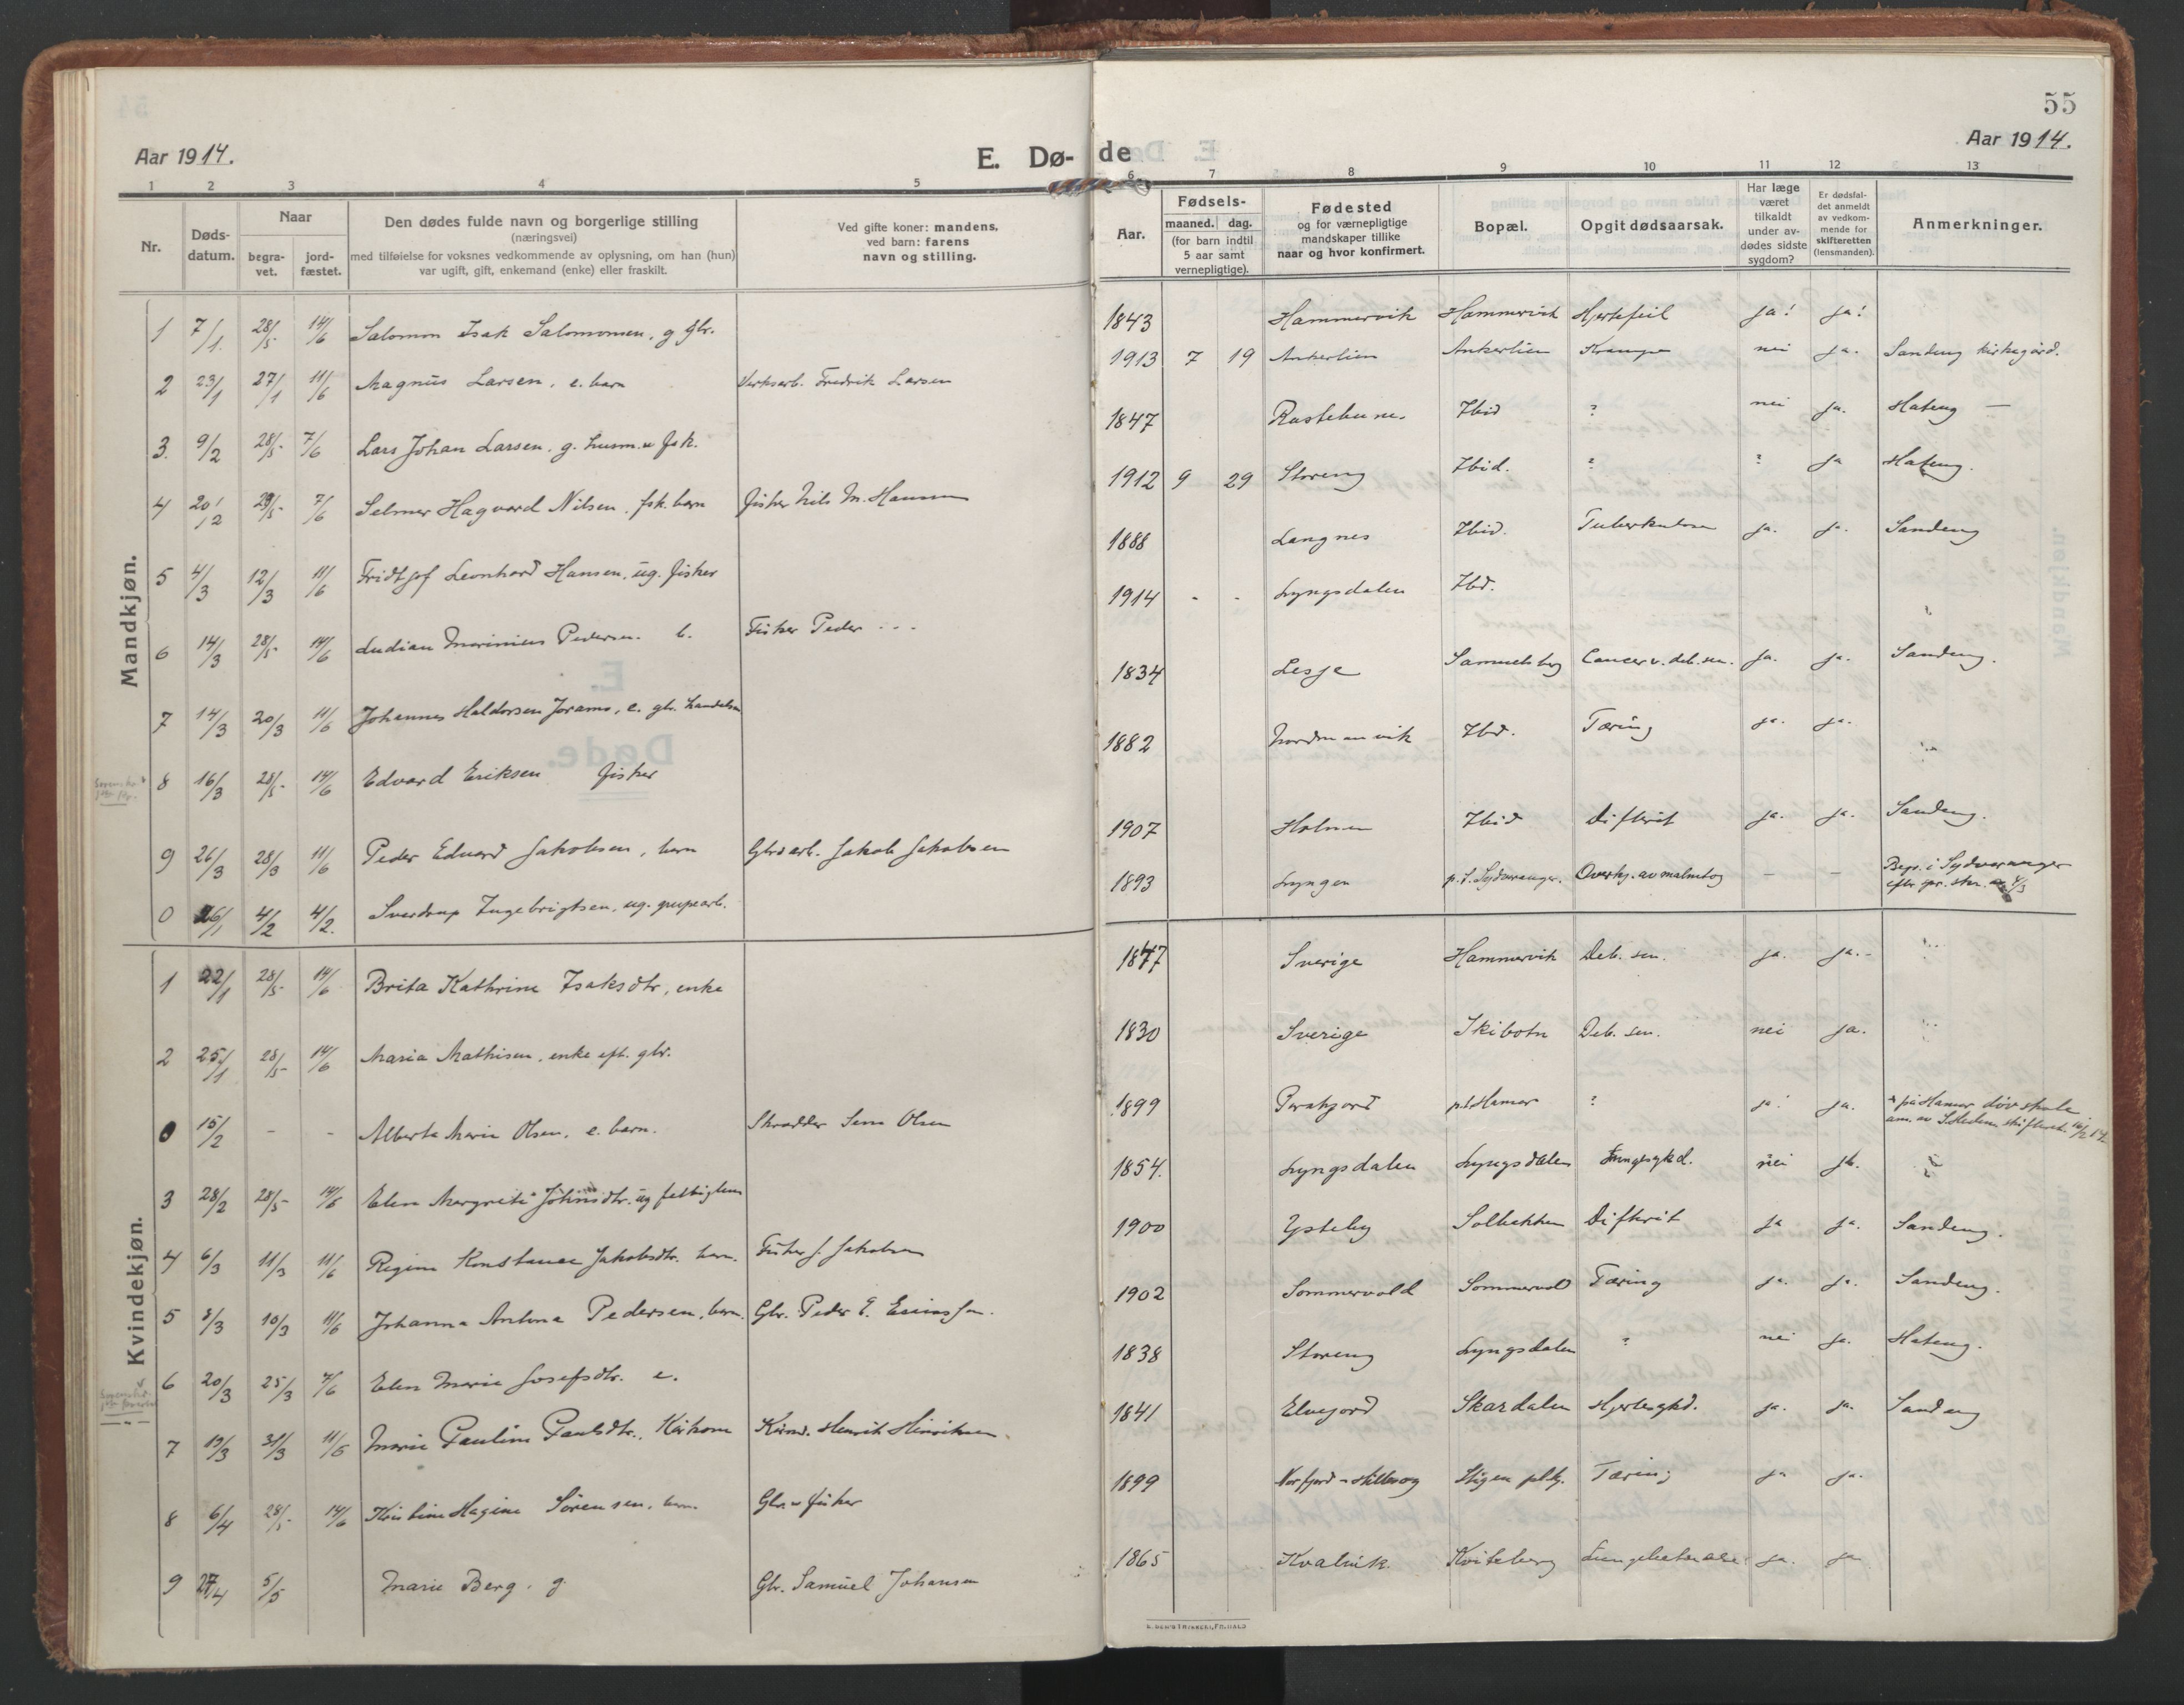 55
Aar 1914.
E. Dø-
de
Aar 1914.
1 2 3 4 5 6 7 8 9 10 11 12 13
Nr.
Døds-
datum.
Naar
begra-
vet.
jord-
fæstet.
Den dødes fulde navn og borgerlige stilling
(næringsvei)
med tilføielse for voksnes vedkommende av oplysning, om han (hun)
var ugift, gift, enkemand (enke) eller fraskilt.
Ved gifte koner: mandens,
ved barn: farens
navn og stilling.
Aar.
Fødsels-
maaned. dag.
(for barn indtil
5 aar samt
vernepligtige).
Fødested
og for værnepligtige
mandskaper tillike
naar og hvor konfirmert.
Bopæl.
Opgit dødsaarsak.
Har læge
været
tilkaldt
under av-
dødes sidste
sygdom?
Er dødsfal-
det anmeldt
av vedkom-
mende for
skifteretten
(lensmanden).
Anmerkninger.
Mandkjøn.
1 7/1. 28/5 14/6 Salomon Isak Salomonsen, g gbr. 1843 Hammervik Hammervik Hjertefeil ja! ja!
2 23/1 27/1 11/6 Magnus Larsen, e. barn Verksarb. Fredrik Larsen 1913 7 19 Ankerlien Ankerlien Krampe nei ja. Sandeng kirkegård.
3. 9/2 28/5 7/6 Lars Johan Larsen, g. husm. fsk. 1847 Rastebu Ibid ? nei ja. Hateng —
4 20/2 29/5 7/6 Selmer Hagvard Nilsen, fsk. barn Fisker Nils M. Hansen 1912 9 29 Storeng Ibid. ? ? ja Hateng.
5 4/3 12/3 11/6 Fridtjof Leonhard Hansen, ug. fisker 1888 Langnes Ibid. Tuberkulose ja. ja. Sandeng
6 14/3 28/5 14/6 Ludian Marinius Pedersen b. Fisker Peder ... 1914 - - Lyngsdalen Ibd.
7 14/3 20/3 11/6 Johannes Haldorsen Joramo, e. gbr. handelsm 1834 Lesje Samuelsberg Cancer v. deb. sen. ja. ja. Sandeng.
8 16/3 28/5 14/6 Edvard Eriksen fisker 1882 Nordmannvik Ibd. Tæring ja. ja.
9 26/3 28/3 11/6 Peder Edvard Jakobsen, barn Gbrs arb. Jakob Jakobsen 1907 Holmen Ibid Difterit ja. ja. Sandeng.
0 26/1 4/2 4/2. Sverdrup Ingebrigtsen, ug. grubearb. 1893 Lyngen p. t. Sydvaranger. Overkj. av malmtog — — Begr. i Sydvaranger
Kvindekjøn.
1 22/1 28/5 14/6 Brita Kathrine Isaksdtr, enke 1847 Sverige Hammervik Deb. sen. ja. ja.
2 25/1 28/5 14/6 Maria Mathisen, enke eft. gbr. 1830 Sverige Skibotn Deb. sen. nei ja.
0 15/2 - - Alberta Marie Olsen, e. barn. Skrædder Olsen 1899 p.t Hamar ? ja! ja. på Hamar døvskole
3 28/2 28/5 14/6 Elen Margrete Johnsdtr. ug fattiglem 1854. Lyngsdalen Lyngsdalen Lungesykd. nei ja.
4 6/3 11/3 11/6 Regine Konstanse Jakobsdtr. barn. Fisker J. Jakobsen 1900 Ysteby Solbakken Difterit ja ja. Sandeng.
5 8/3 10/3 11/6 Johanna Antona Pedersen, barn. Gbr. Peder E. 1902 Sommervold Sommervold Tæring ja. ja. Sandeng.
6 20/3 25/3 7/6 Elen Marie Josefsdtr. e. 1838 Storeng Lyngsdalen ? nei ja. Hateng.
7 19/3 31/3 11/6 Marie Pauline Paulsdtr., Henrik Henriksen 1841 Elvejord Skardalen Hjertesykd. ja. ja. Sandeng
8 6/4 28/5 14/6 Kristine Hagine Sørensen, barn. Gbr. fisker 1899 Stigen Tæring ja ja.
9 27/4 5/5 Marie Berg. g. Gbr. Samuel Johansen 1865 Kvalvik. Kviteberg Lungebetændelse ja. ja